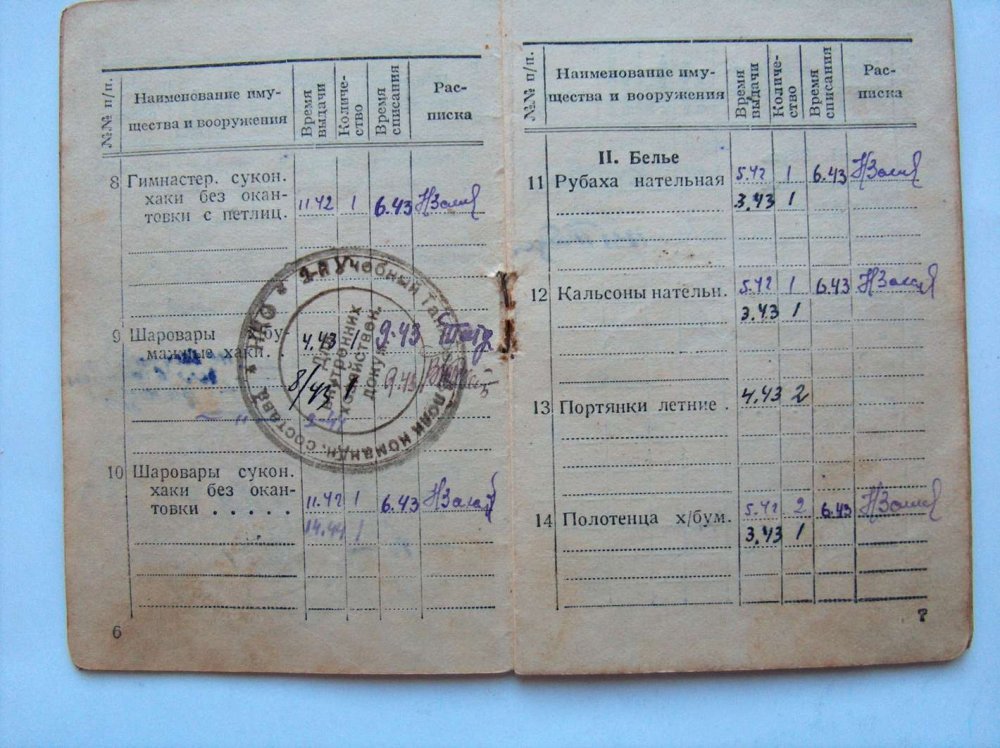 №№ п/п.
Наименование иму-
щества и вооружения
Время
выдачи
Количе-
ство
Время
списания
Рас-
писка
8 Гимнастер. сукон.
хаки без окан-
товки с петлиц. 11.42 1 6.43
9 Шаровары бу-
мажные хаки. 4.43 1 9-43
8/43 1 9.43
10 Шаровары сукон.
хаки без окан-
товки . . . . . 11.42 1 6.43
1
Учебный
команди. состава
Для
внутренних
хозяйствен.
докум.
6
№№ п/п.
Наименование иму-
щества и вооружения
Время
выдачи
Количе-
ство
Время
списания
Рас-
писка
II. Белье
11 Рубаха нательная 5.42 1 6.43
3.43 1
12 Кальсоны нательн. 5.42 1 6.43
3.43 1
13 Портянки летние . 4.43 2
14 Полотенца х/бум. 5.42 2 6.43
3.43 1
7